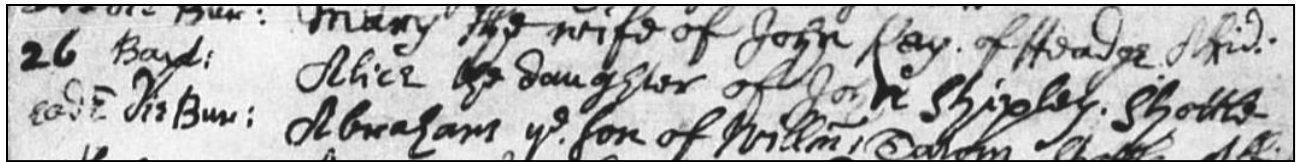 Bur: Mary the wife of John Kay. of Headge
26 Bapt: Alice the daughter of John Shipley. Shottle
eodē die Bur: Abraham ye. son of Willm̃: